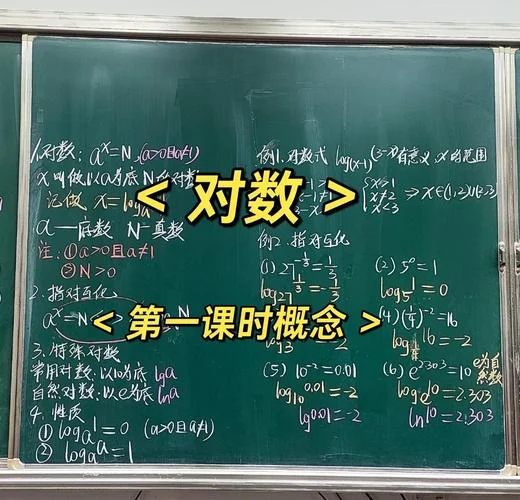 1.对数: aˣ=N,(a>0且a≠1)
x叫做以a为底N的对数
记做, x=logₐ
a—底数 N—真数
注: ①a>0且a≠1
②N>0
2.指对互化
aˣ=N
3.特殊对数
常用对数:以10为底 lga
自然对数:以e为底 lna
4.性质
①logₐ1=0 (a>0且a≠1)
②logₐa=1
<对数>
<第一课时概念>
例1.对数式 log(x-1)(3-x)有意义,x的范围
x>1
x≠2
x<3
⇒x∈(1,2)∪(2,3)
例2.指对互化
(1) 27^(-1/3)=1/3
log₂₇ 1/3=-1/3
(2) 5⁰=1
log₅1=0
=-2
(4) (1/4)⁻²=16
16=-2
(5) 10⁻²=0.01
log₁₀0.01=-2
lg0.01=-2
(6) e^2.303=10 e为自然数
logₑ10=2.303
ln10=2.303